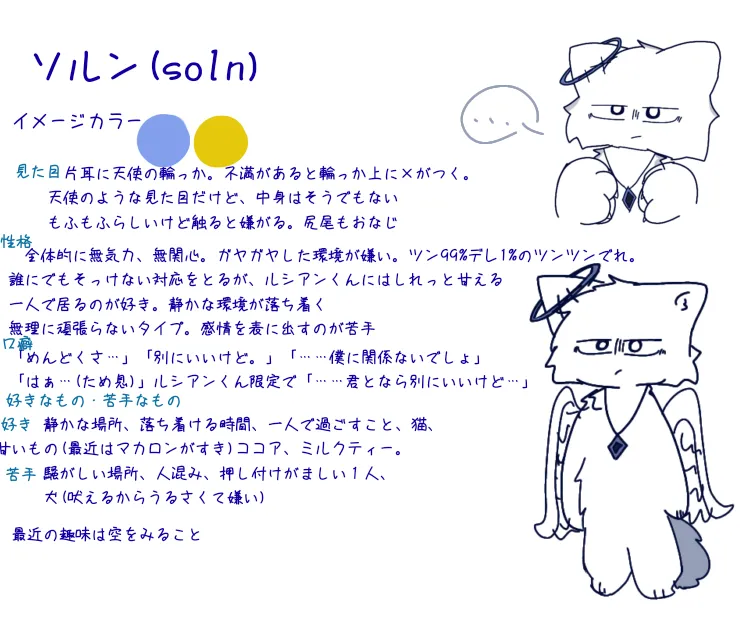 ソルン(soln)
イメージカラー
見た目 片耳に天使の輪っか。不満があると輪っか上に×がつく。
天使のような見た目だけど、中身はそうでもない
もふもふらしいけど触ると嫌がる。尻尾もおなじ
性格
全体的に無気力、無関心。ガヤガヤした環境が嫌い。ツン99%デレ1%のツンツンでれ。
誰にでもそっけない対応をとるが、ルシアンくんにはしれっと甘える
一人で居るのが好き。静かな環境が落ち着く
無理に頑張らないタイプ。感情を表に出すのが苦手
口癖
「めんどくさ…」「別にいいけど。」「……僕に関係ないでしょ」
「はぁ…(ため息)」ルシアンくん限定で「……君となら別にいいけど…」
好きなもの・苦手なもの
好き 静かな場所、落ち着ける時間、一人で過ごすこと、猫、
甘いもの(最近はマカロンがすき)ココア、ミルクティー。
苦手 騒がしい場所、人混み、押し付けがましい1人、
犬(吠えるからうるさくて嫌い)
最近の趣味は空をみること